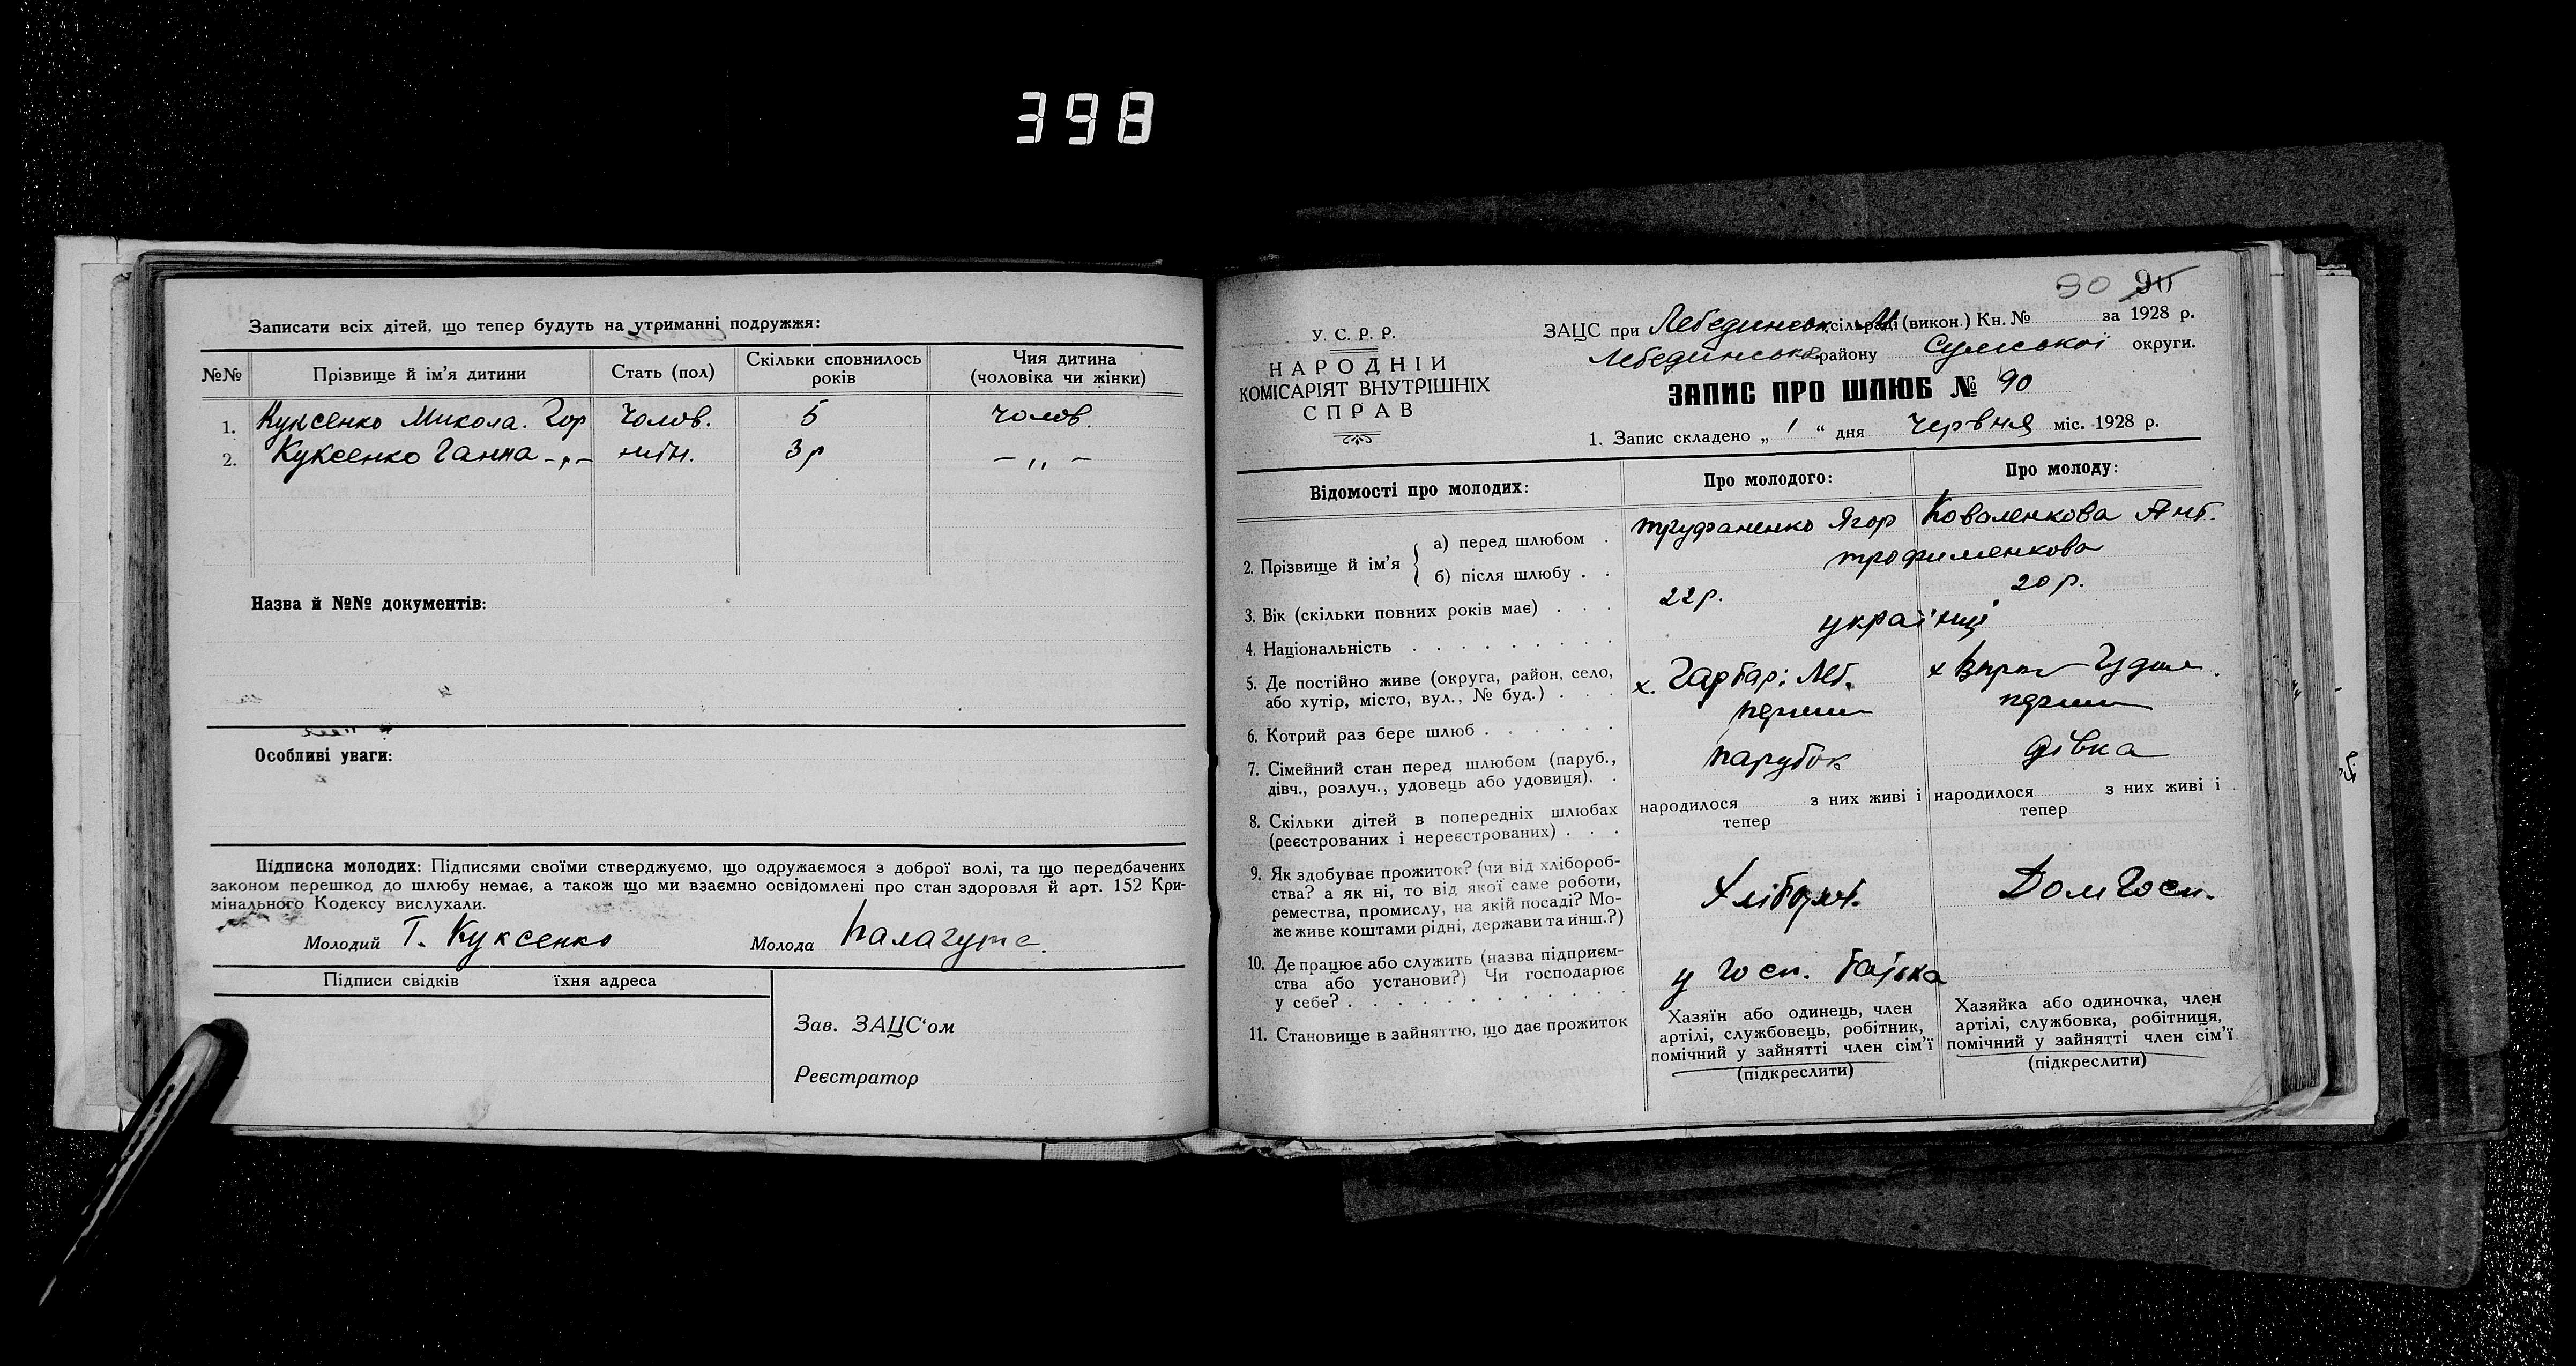 398
Записати всіх дітей, що тепер будуть на утриманні подружжя:
№№ Прізвище й ім'я дитини Стать (пол) Скільки сповнилось років Чия дитина (чоловіка чи жінки)
1. Куксенко Микола. Гор чолов. 5 чолов.
2. Куксенко Ганна -„- жін. 3 р -„-
Назва й №№ документів:
Особливі уваги:
Підписка молодих: Підписями своїми стверджуємо, що одружаємося з доброї волі, та що передбачених
законом перешкод до шлюбу немає, а також що ми взаємно освідомлені про стан здоровля й арт. 152 Кри-
мінального Кодексу вислухали.
Молодий Т. Куксенко Молода
Підписи свідків їхня адреса
Зав. ЗАЦС'ом
Реєстратор
90 90
У. С. Р. Р.
НАРОДНІЙ
КОМІСАРІЯТ ВНУТРІШНІХ
СПРАВ
ЗАЦС при Лебединськ. М. сільраді (викон.) Кн. № за 1928 р.
Лебединськ. району Сумської округи.
ЗАПИС ПРО ШЛЮБ № 90
1. Запис складено „ 1 “ дня Червня міс. 1928 р.
Відомості про молодих: Про молодого: Про молоду:
2. Прізвище й ім'я
а) перед шлюбом . Труфаненко Ягор Коваленкова Ант.
б) після шлюбу . . трофименкова
3. Вік (скільки повних років має) . . . 22 р. 20 р.
4. Національність . . . . . . . . . українці
5. Де постійно живе (округа, район, село,
або хутір, місто, вул., № буд.) . . . х. Гарбарі Леб. х
6. Котрий раз бере шлюб . . . . . . перши перши
7. Сімейний стан перед шлюбом (паруб.,
дівч., розлуч., удовець або удовиця). . парубок дівка
8. Скільки дітей в попередніх шлюбах
(реєстрованих і нереєстрованих) . . .
народилося з них живі і тепер
народилося з них живі і тепер
9. Як здобуває прожиток? (чи від хлібороб-
ства? а як ні, то від якої саме роботи,
ремества, промислу, на якій посаді? Мо-
же живе коштами рідні, держави та инш.?)
Дом Госп.
10. Де працює або служить (назва підприєм-
ства або установи?) Чи господарює
у себе? . . . . . . . . . . . .
у госп. батька
11. Становище в зайняттю, що дає прожиток
Хазяїн або одинець, член
артілі, службовець, робітник,
помічний у зайнятті член сім'ї
(підкреслити)
Хазяйка або одиночка, член
артілі, службовка, робітниця,
помічний у зайнятті член сім'ї
(підкреслити)